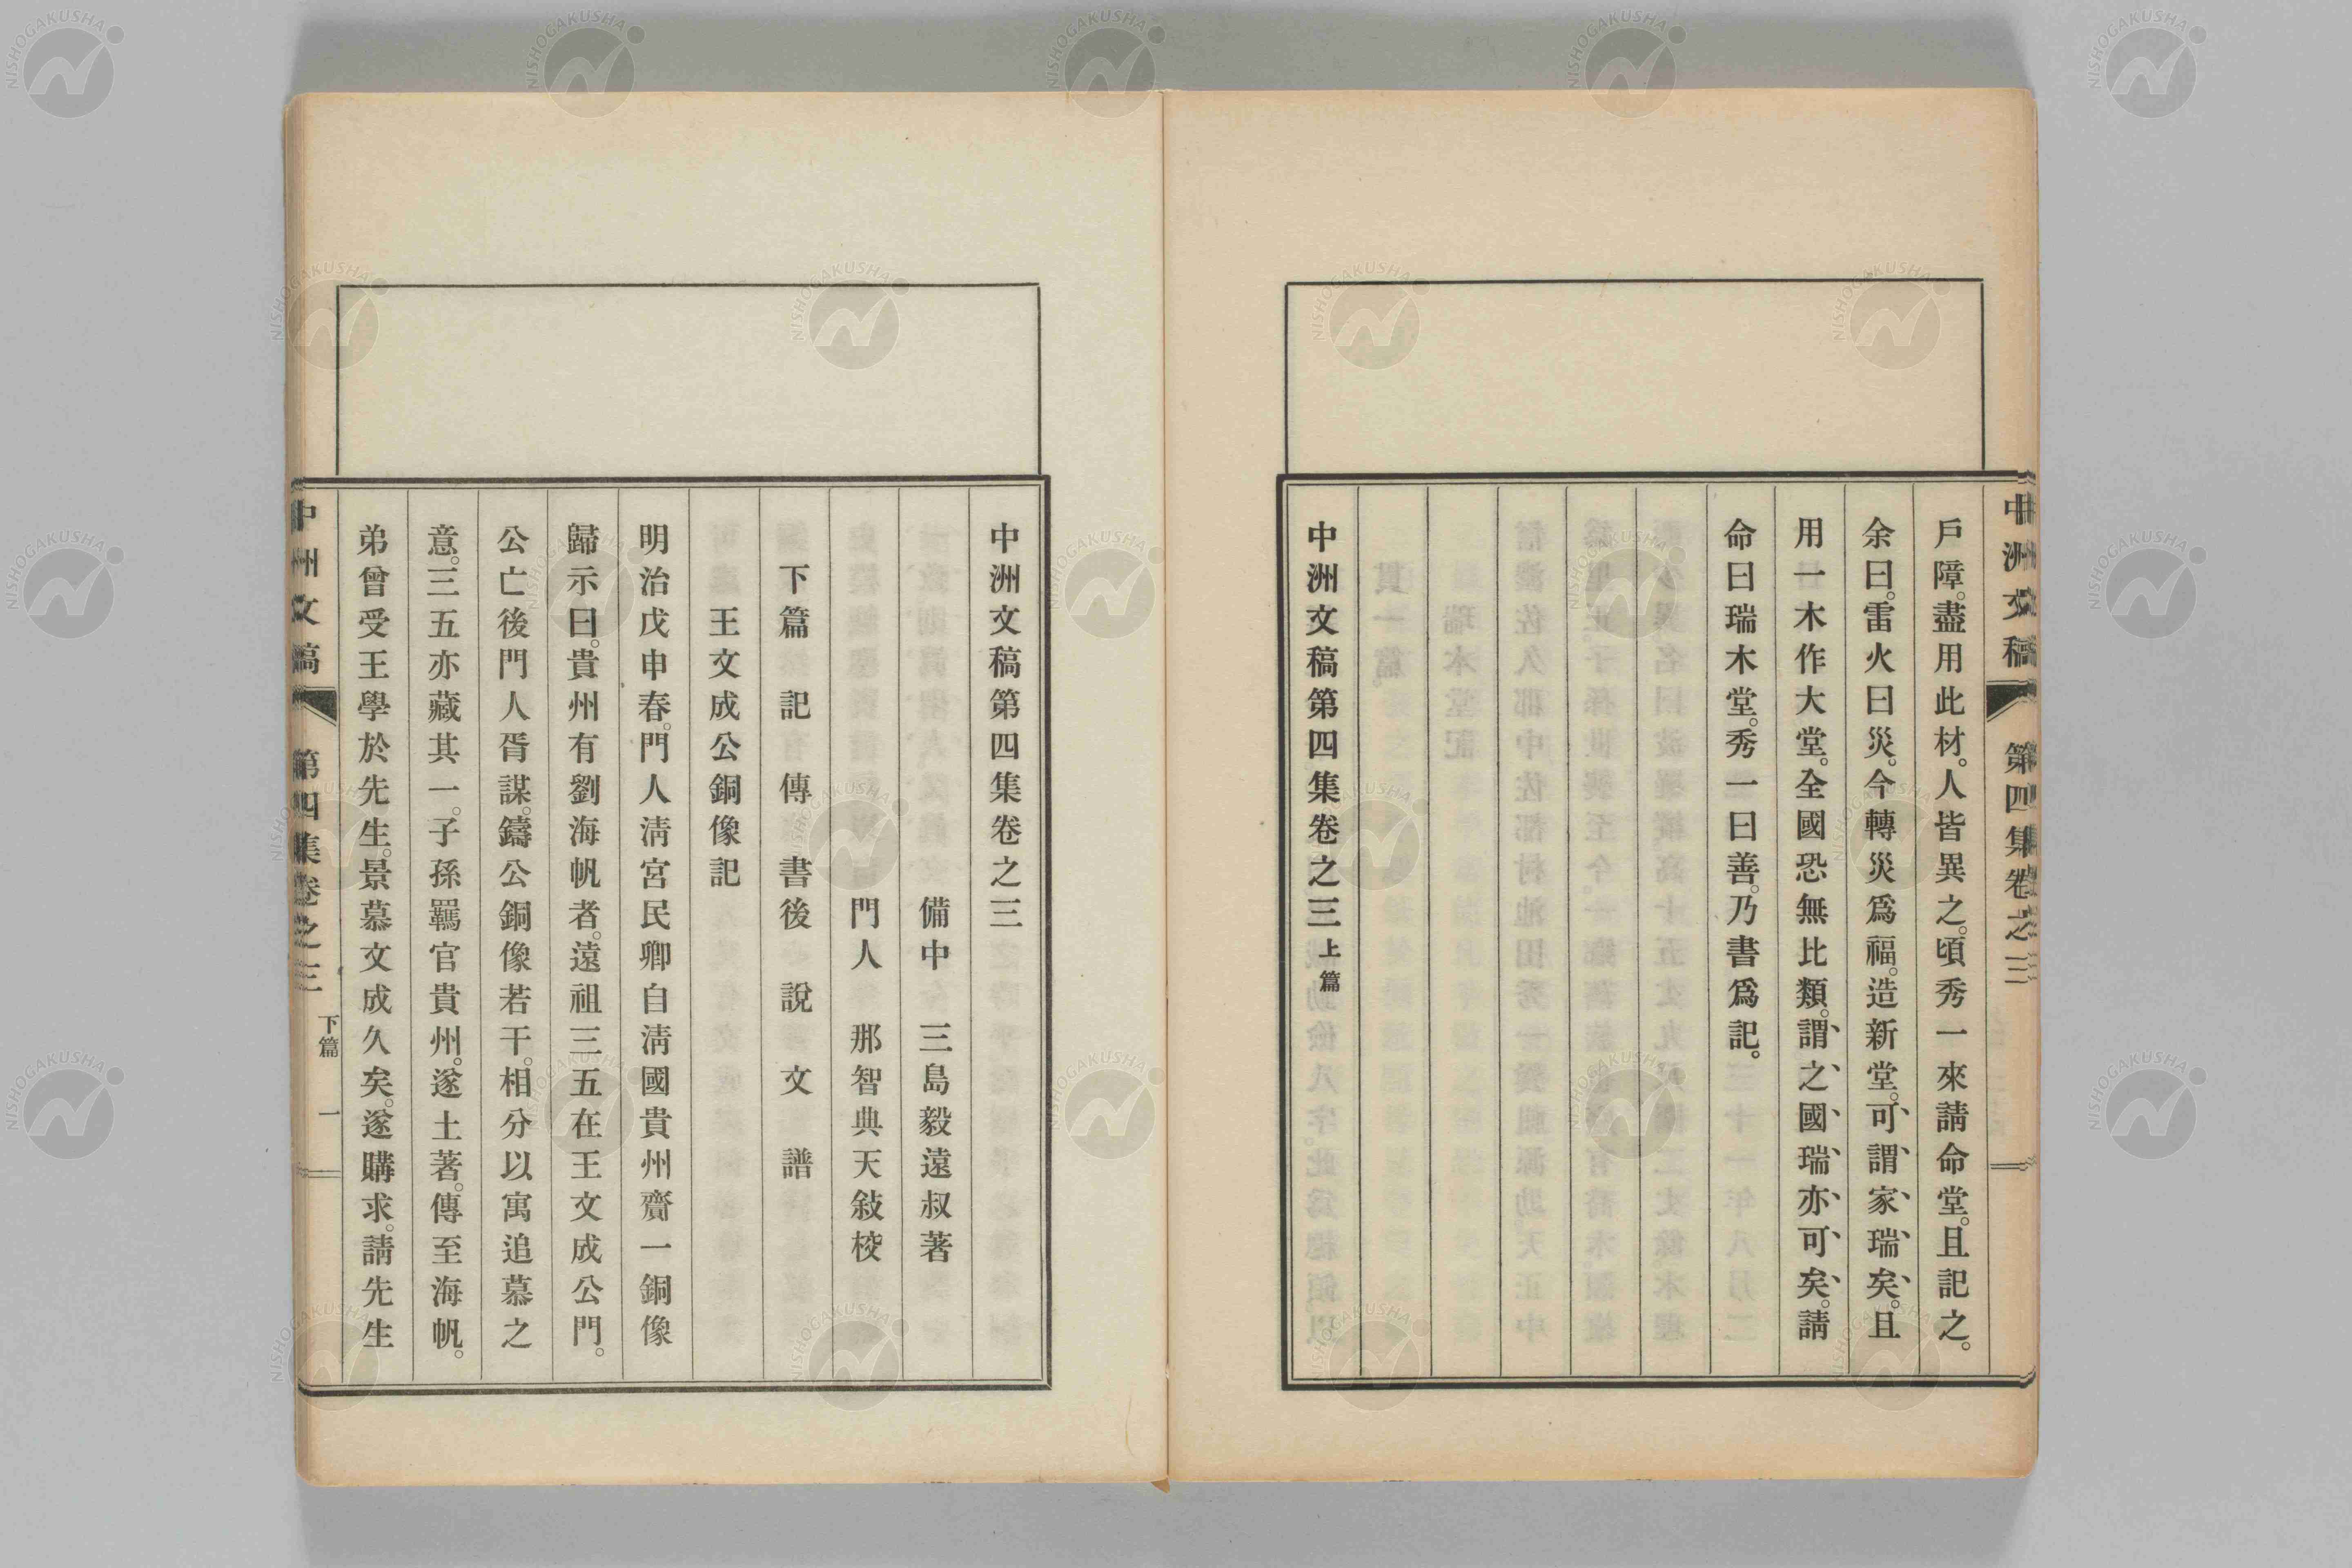 中洲文稿 第四集卷之三
戶障。盡用此材。人皆異之。頃秀一來請命堂。且記之。
余曰。雷火曰災。今轉災爲福。造新堂。可、謂、家、瑞、矣、。且
用一木作大堂。全國恐無比類。謂、之、國、瑞、亦、可、矣、。請
命曰瑞木堂。秀一曰善。乃書爲記。
中洲文稿第四集卷之三上篇
中洲文稿第四集卷之三
備中 三島毅遠叔著
門人 那智典天敍校
下篇 記 傳 書後 說 文 譜
王文成公銅像記
明治戊申春。門人淸宮民卿自淸國貴州齎一銅像
歸示曰。貴州有劉海帆者。遠祖三五在王文成公門。
公亡後門人胥謀。鑄公銅像若干。相分以寓追慕之
意。三五亦藏其一。子孫羈官貴州。遂土著。傳至海帆。
弟曾受王學於先生。景慕文成久矣。遂購求。請先生
中洲文稿 第四集卷之三 下篇 一
NISHOGAKUSHA